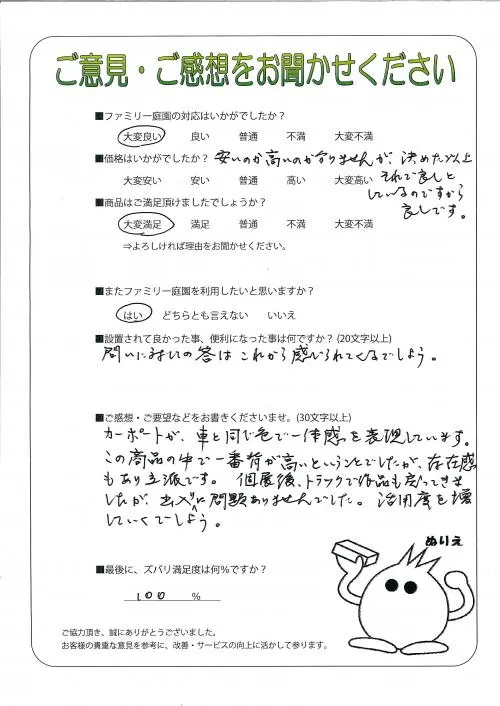 ご意見・ご感想をお聞かせください
■ファミリー庭園の対応はいかがでしたか？
大変良い 良い 普通 不満 大変不満
■価格はいかがでしたか？ 安いのか高いのか分りませんが、決めた以上
それで良しと
大変安い 安い 普通 高い 大変高い
しているのですから
良しです。
■商品はご満足頂けましたでしょうか？
大変満足 満足 普通 不満 大変不満
⇒よろしければ理由をお聞かせください。
■またファミリー庭園を利用したいと思いますか？
はい どちらとも言えない いいえ
■設置されて良かった事、便利になった事は何ですか？(20文字以上)
問いに対しての答はこれから感じられてくるでしょう。
■ご感想・ご要望などをお書きくださいませ。(30文字以上)
カーポートが、車と同じ色で一体感を表現しています。
この商品の中で一番背が高いということでしたが、存在感
もあり立派です。個展後、トラックで作品も戻ってきま
したが、出入りに問題ありませんでした。活用度を増
していくでしょう。
ぬりえ
■最後に、ズバリ満足度は何％ですか？
100 ％
ご協力頂き、誠にありがとうございました。
お客様の貴重な意見を参考に、改善・サービスの向上に活かして参ります。